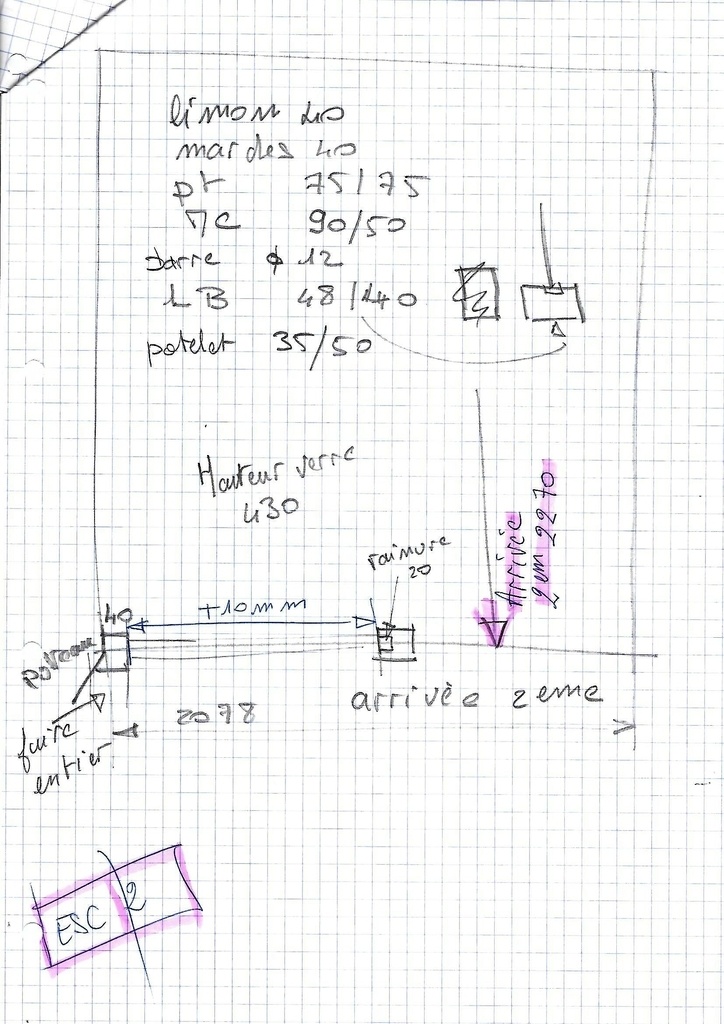 limon 40
marches 40
pt 75/75
MC 90/50
barre ϕ 12
LB 48/140
potelet 35/50
Hauteur verre
430
rainure
20
Arrivée
2em 2270
40
+10mm
poteau
arrivée 2eme
2078
faire
entier
ESC 2